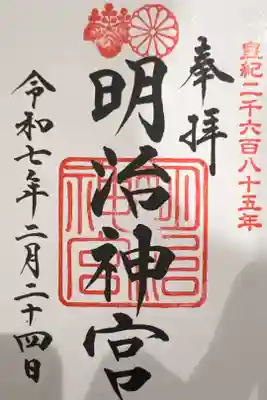 皇紀二千六百八十五年
奉拝
明治神宮
明治神宮
令和七年二月二十四日